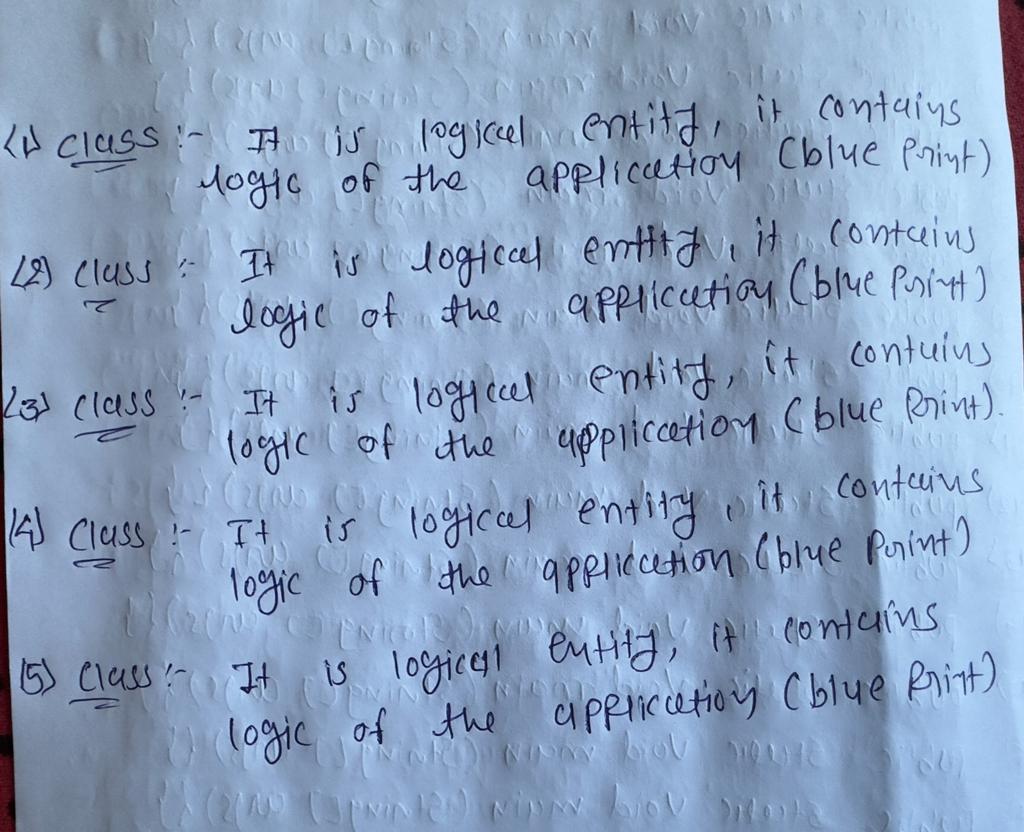 (1) Class :- It is logical entity, it contains
logic of the application (blue print)
(2) Class :- It is logical entity, it contains
logic of the application (blue print)
(3) Class :- It is logical entity, it contains
logic of the application (blue print).
(4) Class :- It is logical entity, it contains
logic of the application (blue print)
(5) Class :- It is logical entity, it contains
logic of the application (blue print)